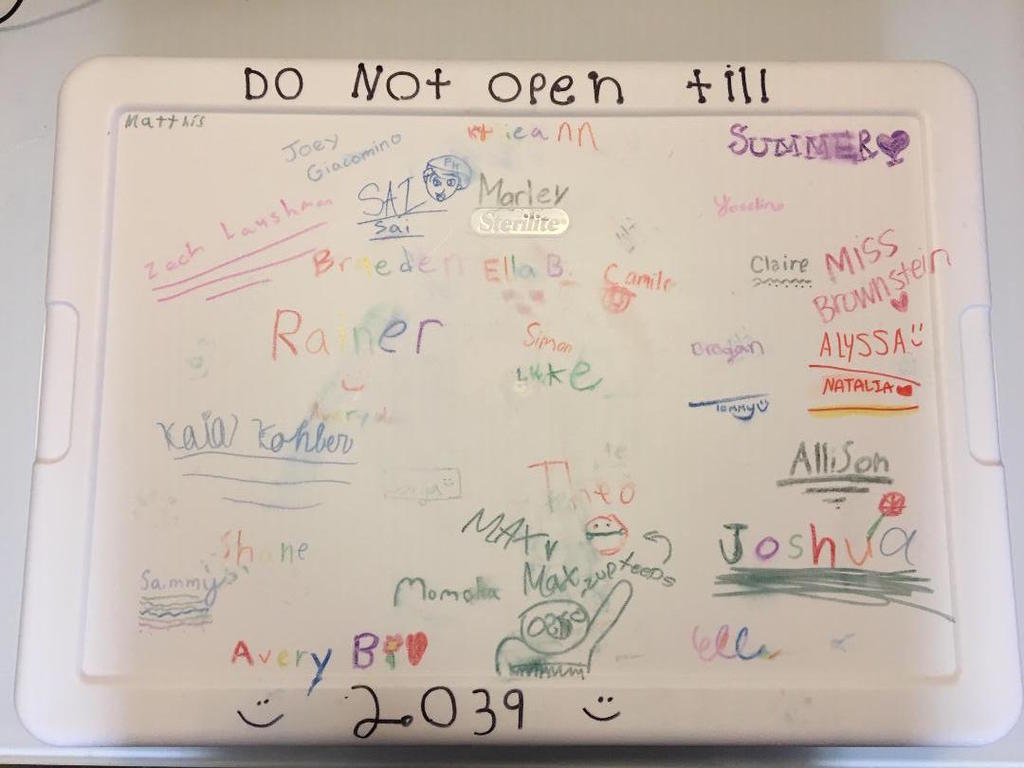 DO NOT open till
Matthis
Joey
Giacomino
SUMMER
SAI
Sai
PH
Marley
Sterilite
Zach Laushman
Braeden
Ella B.
Camila
Claire
MISS
Brownstein
Rainer
Simon
Luke
Brogan
ALYSSA
NATALIA
Tommy
Kaia Kohber
Allison
Tento
MAX
Joshua
Shane
Sammy
Momoka
Max
Avery B
elle
2039